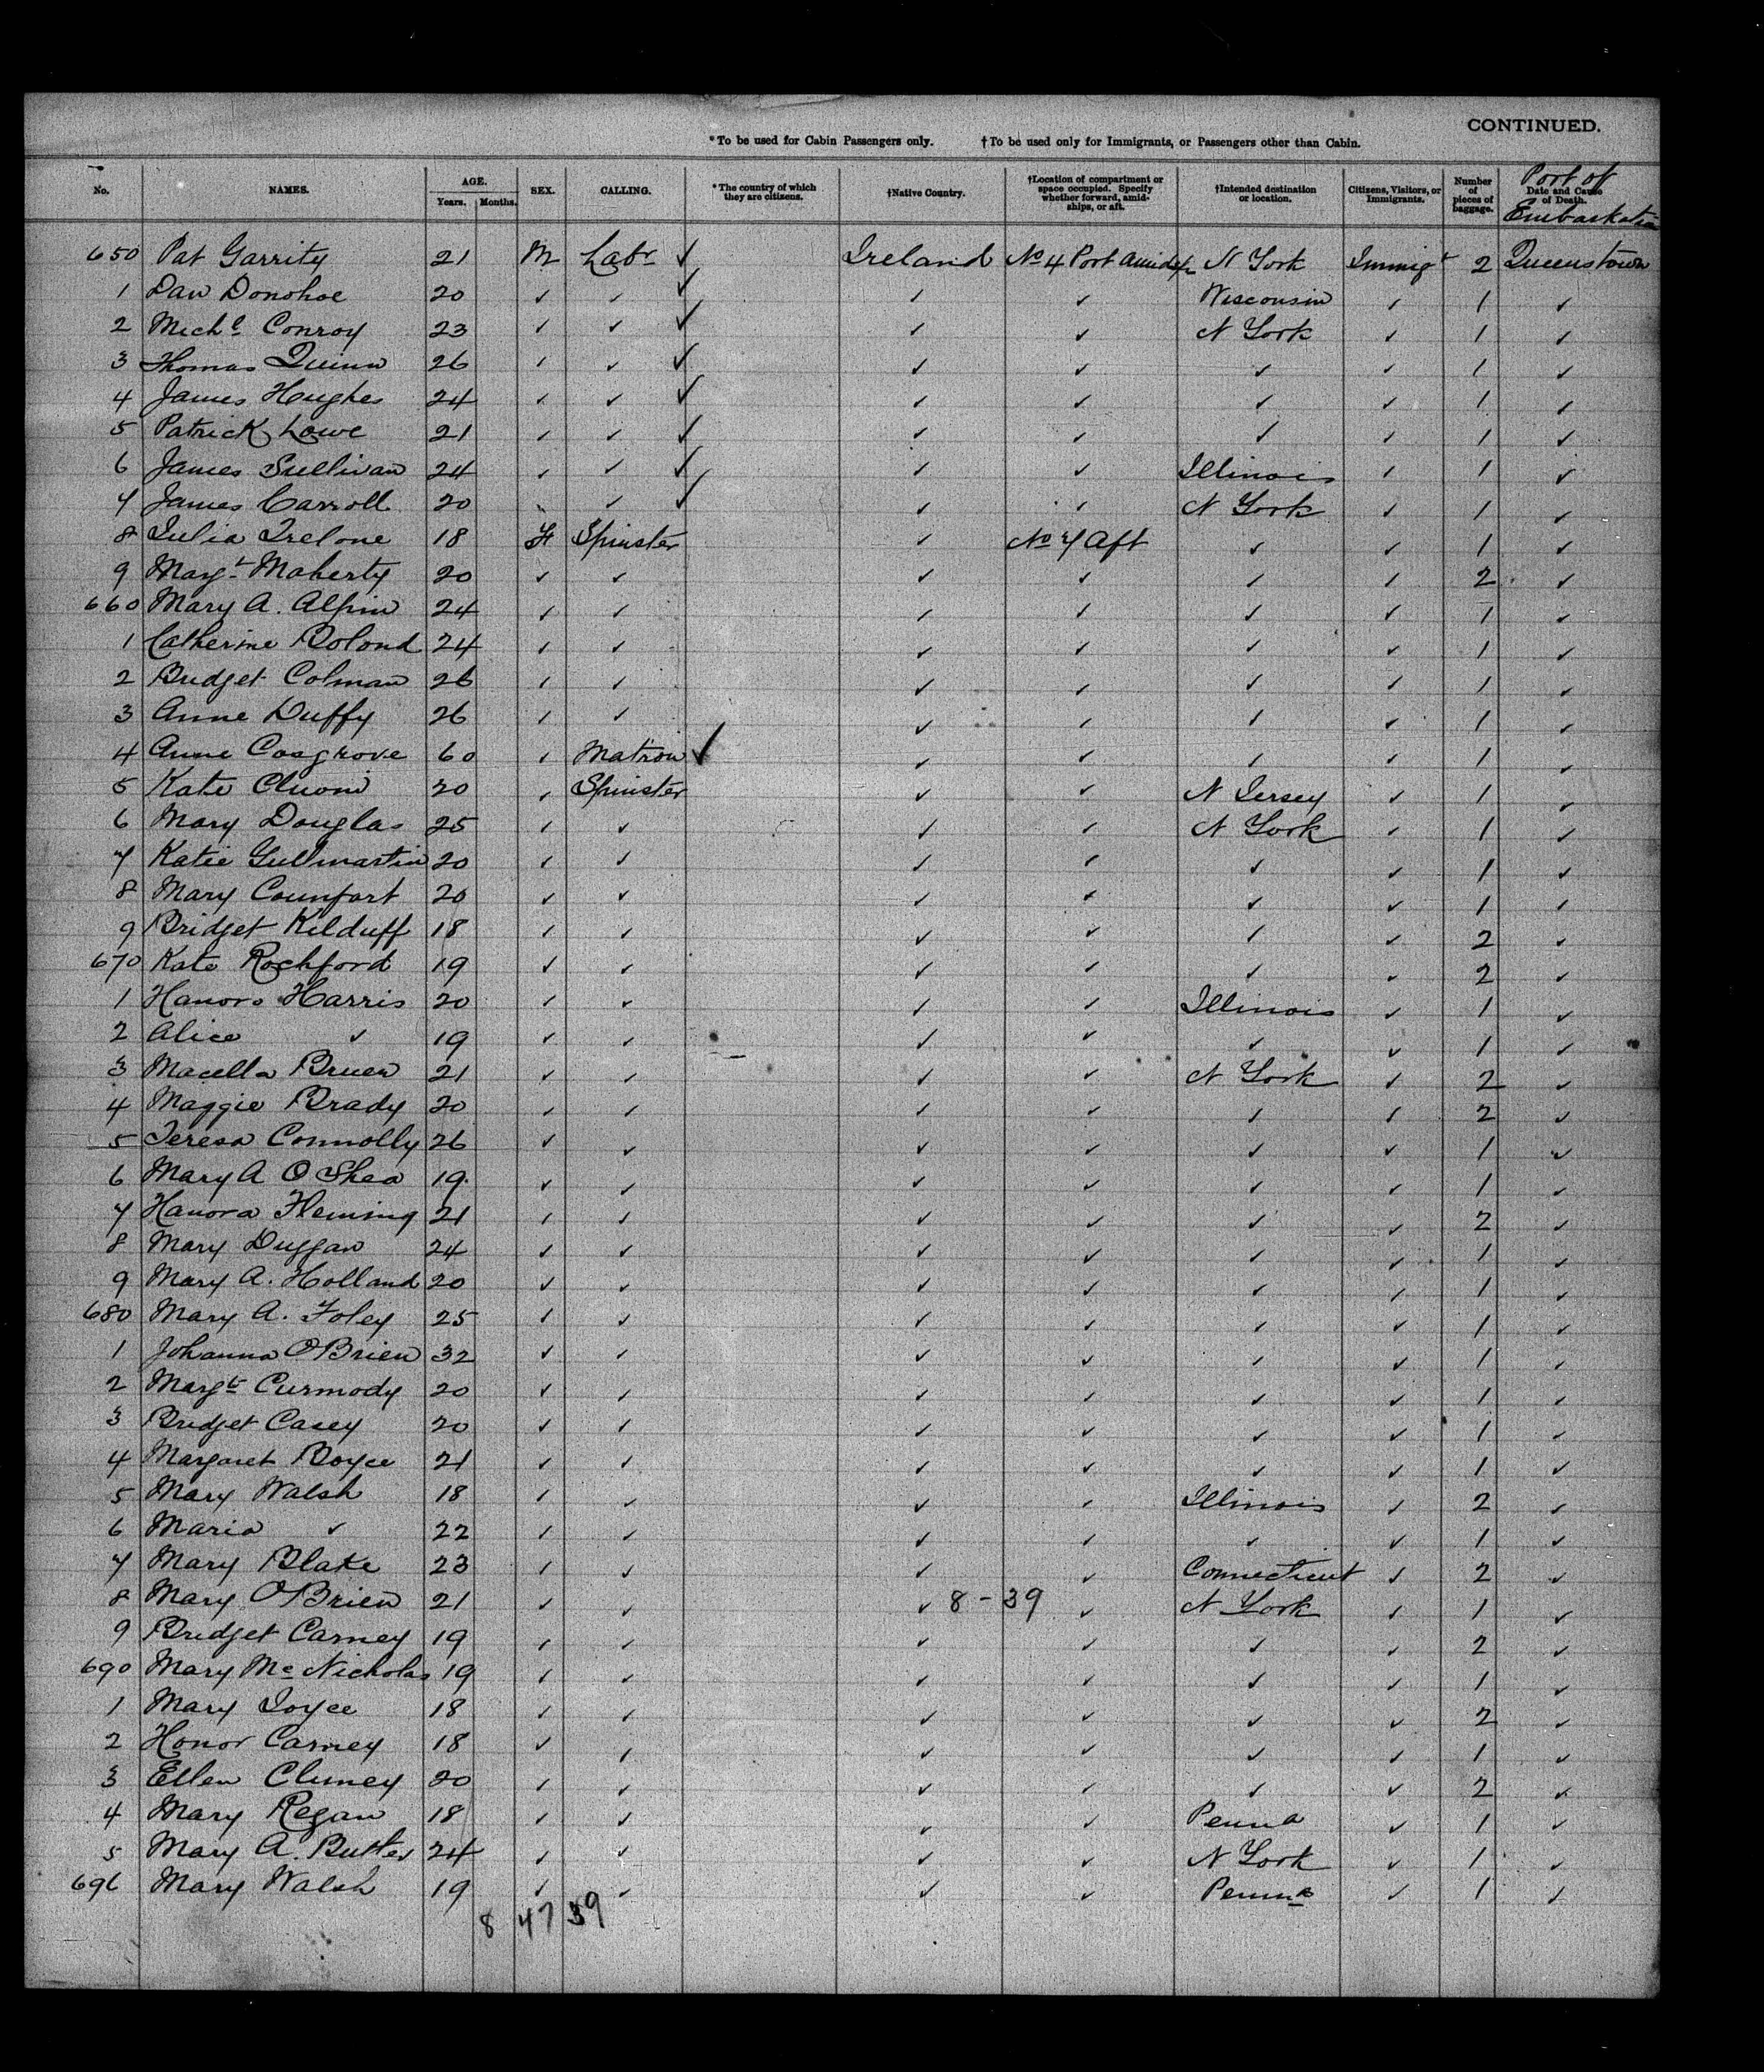 CONTINUED.
*To be used for Cabin Passengers only. †To be used only for Immigrants, or Passengers other than Cabin.
No. NAMES. AGE. Years. Months. SEX. CALLING. *The country of which they are citizens. †Native Country. †Location of compartment or space occupied. Specify whether forward, amidships, or aft. †Intended destination or location. Citizens, Visitors, or Immigrants. Number of pieces of baggage. Date and Cause of Death. Port of Embarkation
650 Pat Garrity 21 M Labr ✓ Ireland No 4 Port Amidsp N York Immigt 2 Queenstown
1 Dan Donohoe 20 ✓ ✓ ✓ ✓ ✓ Wisconsin ✓ 1 ✓
2 Michl Conroy 23 ✓ ✓ ✓ ✓ ✓ N York ✓ 1 ✓
3 Thomas Quinn 26 ✓ ✓ ✓ ✓ ✓ ✓ ✓ 1 ✓
4 James Hughes 24 ✓ ✓ ✓ ✓ ✓ ✓ ✓ 1 ✓
5 Patrick Lowe 21 ✓ ✓ ✓ ✓ ✓ ✓ ✓ 1 ✓
6 James Sullivan 24 ✓ ✓ ✓ ✓ ✓ Illinois ✓ 1 ✓
7 James Carroll 20 ✓ ✓ ✓ ✓ ✓ N York ✓ 1 ✓
8 Julia 18 F Spinster ✓ No 7 Aft ✓ ✓ 1 ✓
9 Margt Moherty 20 ✓ ✓ ✓ ✓ ✓ ✓ 2 ✓
660 Mary A. Alpin 24 ✓ ✓ ✓ ✓ ✓ ✓ 1 ✓
1 Catherine Bolond 24 ✓ ✓ ✓ ✓ ✓ ✓ 1 ✓
2 Bridget Colman 26 ✓ ✓ ✓ ✓ ✓ ✓ 1 ✓
3 Anne Duffy 26 ✓ ✓ ✓ ✓ ✓ ✓ 1 ✓
4 Anne Cosgrove 60 ✓ Matron ✓ ✓ ✓ ✓ ✓ 1 ✓
5 Kate 20 ✓ Spinster ✓ ✓ N Jersey ✓ 1 ✓
6 Mary Douglas 25 ✓ ✓ ✓ ✓ N York ✓ 1 ✓
7 Katie Gullmartin 20 ✓ ✓ ✓ ✓ ✓ ✓ 1 ✓
8 Mary Counfort 20 ✓ ✓ ✓ ✓ ✓ ✓ 1 ✓
9 Bridget Kilduff 18 ✓ ✓ ✓ ✓ ✓ ✓ 2 ✓
670 Kate Rochford 19 ✓ ✓ ✓ ✓ ✓ ✓ 2 ✓
1 Hanora Harris 20 ✓ ✓ ✓ ✓ Illinois ✓ 1 ✓
2 Alice ✓ 19 ✓ ✓ ✓ ✓ ✓ ✓ 1 ✓
3 Macella Bruen 21 ✓ ✓ ✓ ✓ N York ✓ 2 ✓
4 Maggie Brady 20 ✓ ✓ ✓ ✓ ✓ ✓ 2 ✓
5 Teresa Connolly 26 ✓ ✓ ✓ ✓ ✓ ✓ 1 ✓
6 Mary A O'Shea 19 ✓ ✓ ✓ ✓ ✓ ✓ 1 ✓
7 Hanora Fleming 21 ✓ ✓ ✓ ✓ ✓ ✓ 2 ✓
8 Mary Duggan 24 ✓ ✓ ✓ ✓ ✓ ✓ 1 ✓
9 Mary A. Holland 20 ✓ ✓ ✓ ✓ ✓ ✓ 1 ✓
680 Mary A. Foley 25 ✓ ✓ ✓ ✓ ✓ ✓ 1 ✓
1 Johanna O'Brien 32 ✓ ✓ ✓ ✓ ✓ ✓ 1 ✓
2 Margt Curmody 20 ✓ ✓ ✓ ✓ ✓ ✓ 1 ✓
3 Bridget Casey 20 ✓ ✓ ✓ ✓ ✓ ✓ 1 ✓
4 Margaret Boyce 21 ✓ ✓ ✓ ✓ ✓ ✓ 1 ✓
5 Mary Walsh 18 ✓ ✓ ✓ ✓ Illinois ✓ 2 ✓
6 Maria ✓ 22 ✓ ✓ ✓ ✓ ✓ ✓ 1 ✓
7 Mary Blake 23 ✓ ✓ ✓ ✓ Connecticut ✓ 2 ✓
8 Mary O'Brien 21 ✓ ✓ ✓ 8-39 ✓ N York ✓ 1 ✓
9 Bridget Carney 19 ✓ ✓ ✓ ✓ ✓ ✓ 2 ✓
690 Mary McNicholas 19 ✓ ✓ ✓ ✓ ✓ ✓ 1 ✓
1 Mary Joyce 18 ✓ ✓ ✓ ✓ ✓ ✓ 2 ✓
2 Honor Carney 18 ✓ ✓ ✓ ✓ ✓ ✓ 1 ✓
3 Ellen Cluney 20 ✓ ✓ ✓ ✓ ✓ ✓ 2 ✓
4 Mary Regan 18 ✓ ✓ ✓ ✓ Penna ✓ 1 ✓
5 Mary A. Butler 24 ✓ ✓ ✓ ✓ N York ✓ 1 ✓
696 Mary Walsh 19 ✓ ✓ ✓ ✓ Penna ✓ 1 ✓
8 47 39